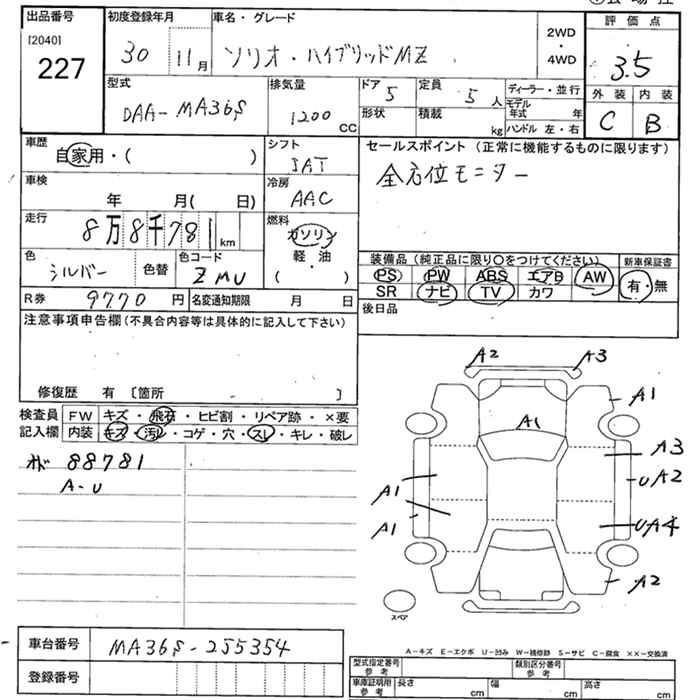 出品番号 初度登録年月 車名・グレード 2WD ・ 4WD 評価点
[2040]
227 30 11月 ソリオ・ハイブリッドMZ 3.5
型式 排気量 ドア 5 定員 5人 ディーラー・並行 外装 内装
DAA-MA36S 1200 CC 形状 積載 kg モデル年式 年 C B
ハンドル 左・右
車歴 自家用・( ) シフト 5AT セールスポイント(正常に機能するものに限ります)
車検 年 月( 日) 冷房 AAC 全方位モニター
走行 8万8千781km 燃料 ガソリン
軽・油
・
( )
色 シルバー 色替 色コード ZMU 装備品(純正品に限り○をつけてください) 新車保証書
PS PW ABS エアB AW 有・無
SR ナビ TV カワ
R券 9770円 名変通知期限 月 日 後日品
注意事項申告欄(不具合内容等は具体的に記入して下さい)
修復歴 有 〔箇所 〕
検査員 FW キズ・飛石・ヒビ割・リペア跡・×要
記入欄 内装 キズ・汚レ・コゲ・穴・スレ・キレ・破レ
88781
A-U
A2 A3
A1
A1
A3
A1 UA2
A1 UA4
A2
スペア
車台番号 MA36S-255354
A-キズ E-エクボ U-凹み W-補修跡 S-サビ C-腐食 ××-交換済
登録番号 型式指定番号 参考 類別区分番号 参考
車庫証明用 参考 長さ cm 幅 cm 高さ cm